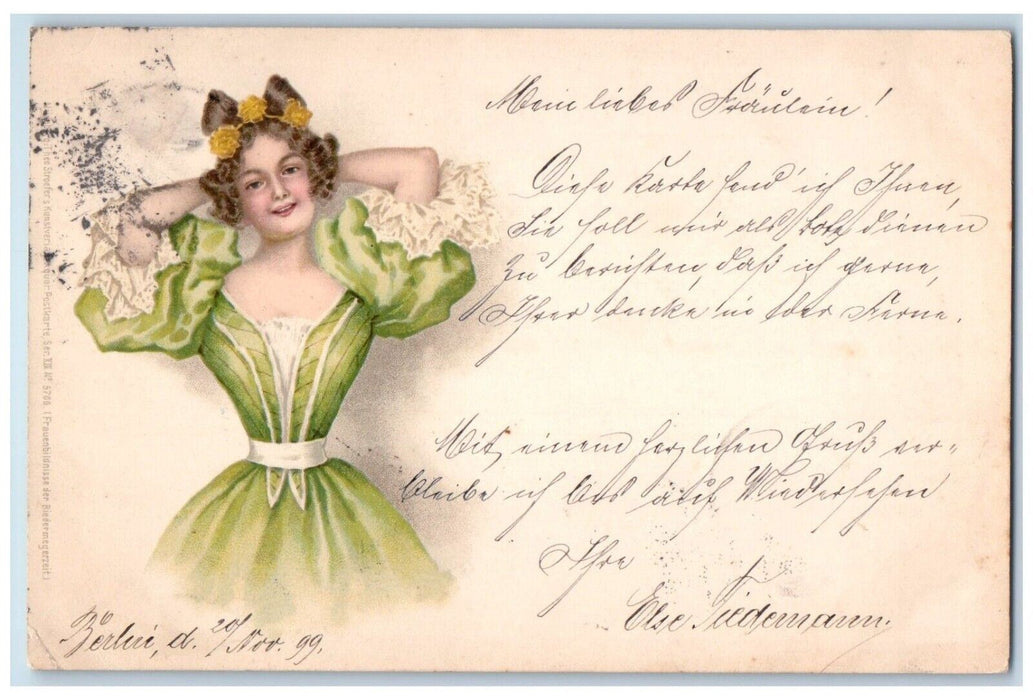 Mein liebes Fräulein!
Diese Karte send' ich Ihnen,
Sie soll mir als Bote dienen
Zu berichten, daß ich gerne,
Ihrer denke in der Ferne.
Mit einem herzlichen Gruß ver-
bleibe ich bis auf Wiedersehen
Ihre
Else Tiedemann.
Berlin, d. 20/Nov. 99.
Postkarte. Ser. XII Nº 5706. (Frauenbildnisse der Biedermeierzeit.)